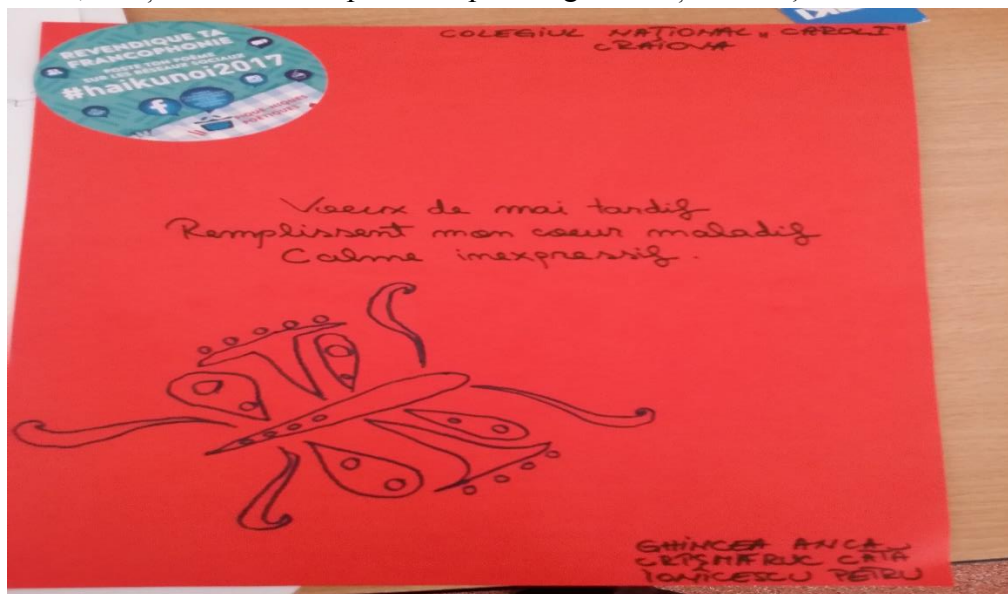 REVENDIQUE TA
FRANCOPHONIE
POSTE TON POÈME
SUR LES RÉSEAUX SOCIAUX
#haikunoi2017
f
COLEGIUL NAȚIONAL „CAROL I”
CRAIOVA
Voeux de mai tardif
Remplissent mon coeur maladif
Calme inexpressif.
GHINCEA ANCA
IONICESCU PETRU